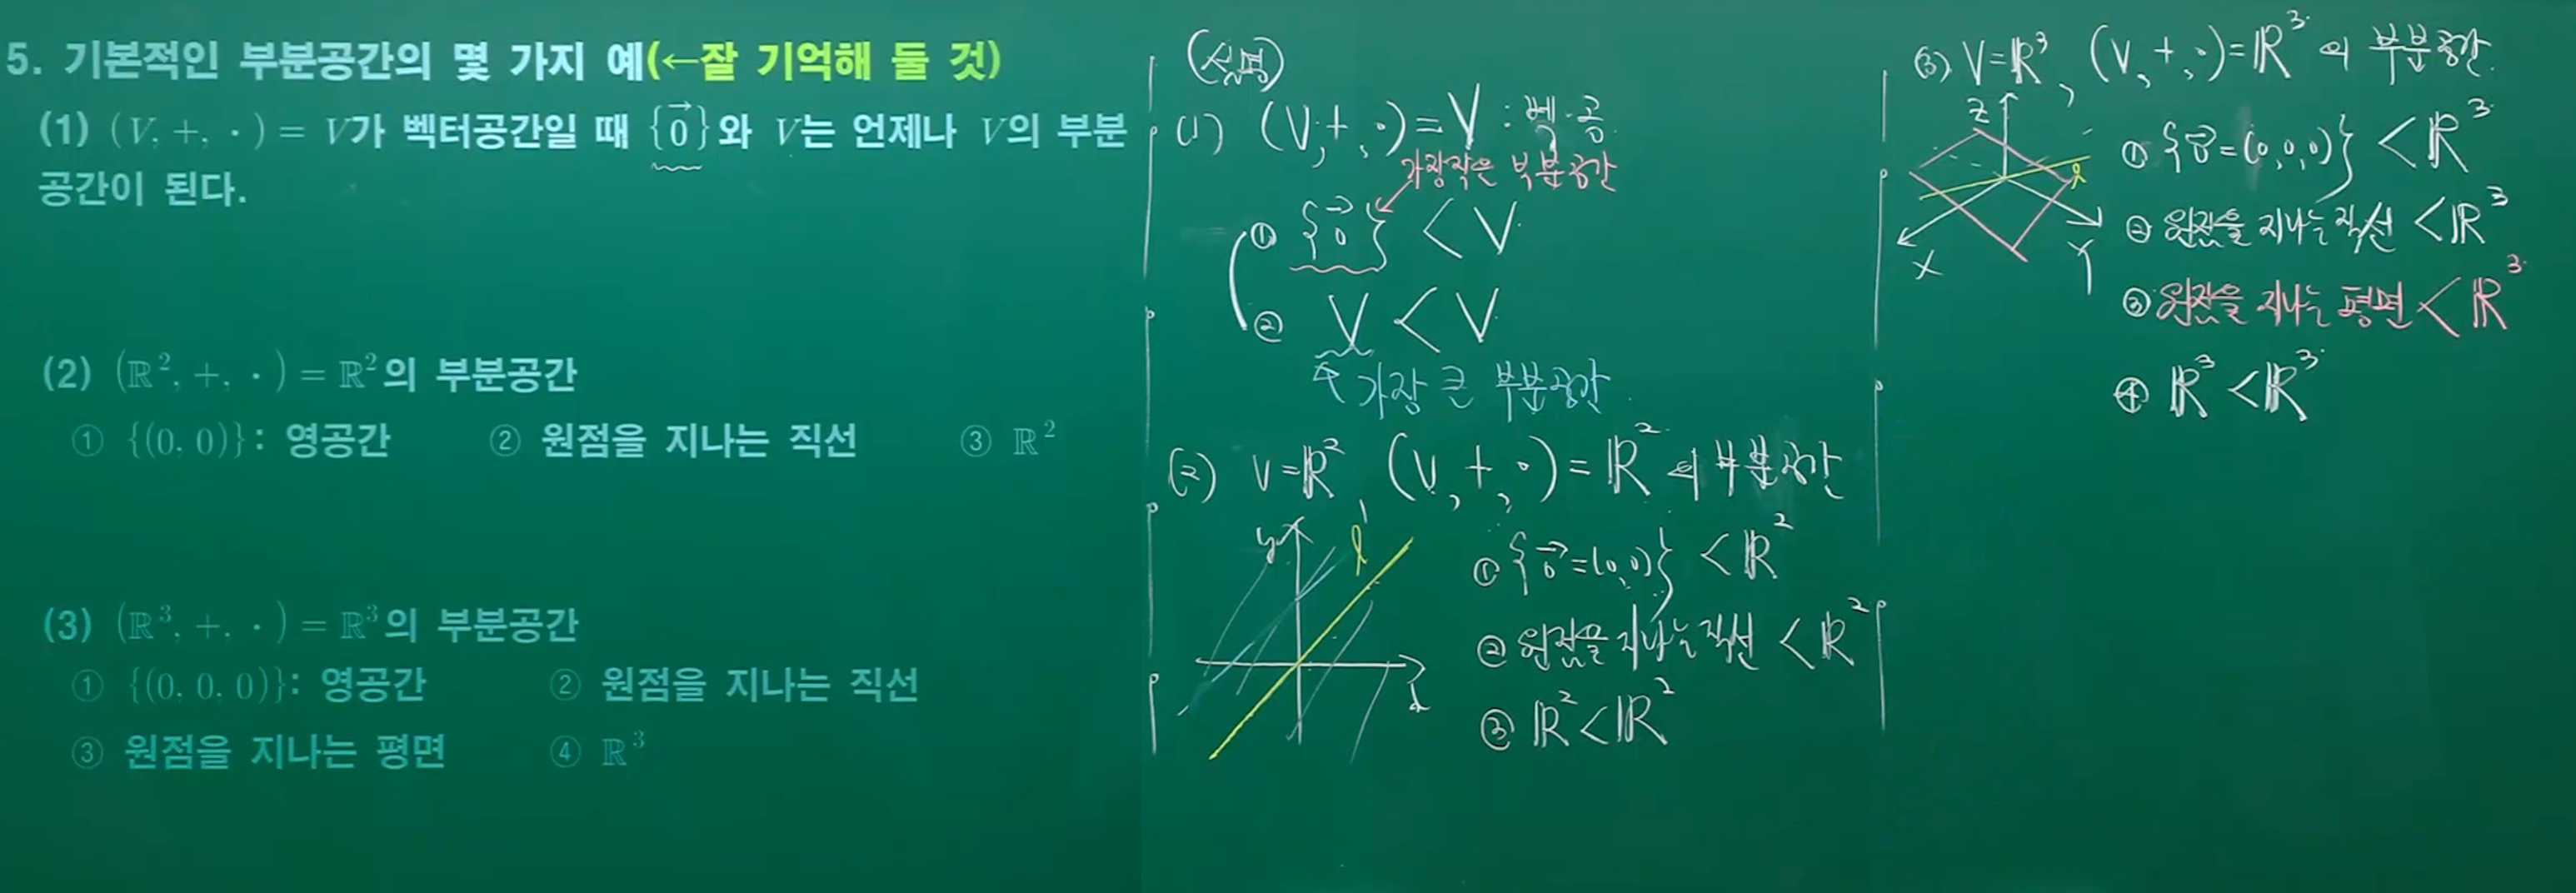 5. 기본적인 부분공간의 몇 가지 예(←잘 기억해 둘 것)
(1) (V, +, ·) = V가 벡터공간일 때 {0⃗}와 V는 언제나 V의 부분
공간이 된다.
(2) (ℝ², +, ·) = ℝ²의 부분공간
① {(0, 0)}: 영공간 ② 원점을 지나는 직선 ③ ℝ²
(3) (ℝ³, +, ·) = ℝ³의 부분공간
① {(0, 0, 0)}: 영공간 ② 원점을 지나는 직선
③ 원점을 지나는 평면 ④ ℝ³
(설명)
(1) (V, +, ·) = V : 벡·공
가장작은 부분공간
① {0⃗} < V
② V < V
가장 큰 부분공간
(2) V=ℝ² (V, +, ·) = ℝ² 의 부분공간
y l
x
① {0⃗=(0,0)} < ℝ²
② 원점을 지나는 직선 < ℝ²
③ ℝ² < ℝ²
(3) V=ℝ³, (V, +, ·) = ℝ³ 의 부분공간
Z
l
X Y
① {0⃗=(0,0,0)} < ℝ³
② 원점을 지나는 직선 < ℝ³
③ 원점을 지나는 평면 < ℝ³
④ ℝ³ < ℝ³